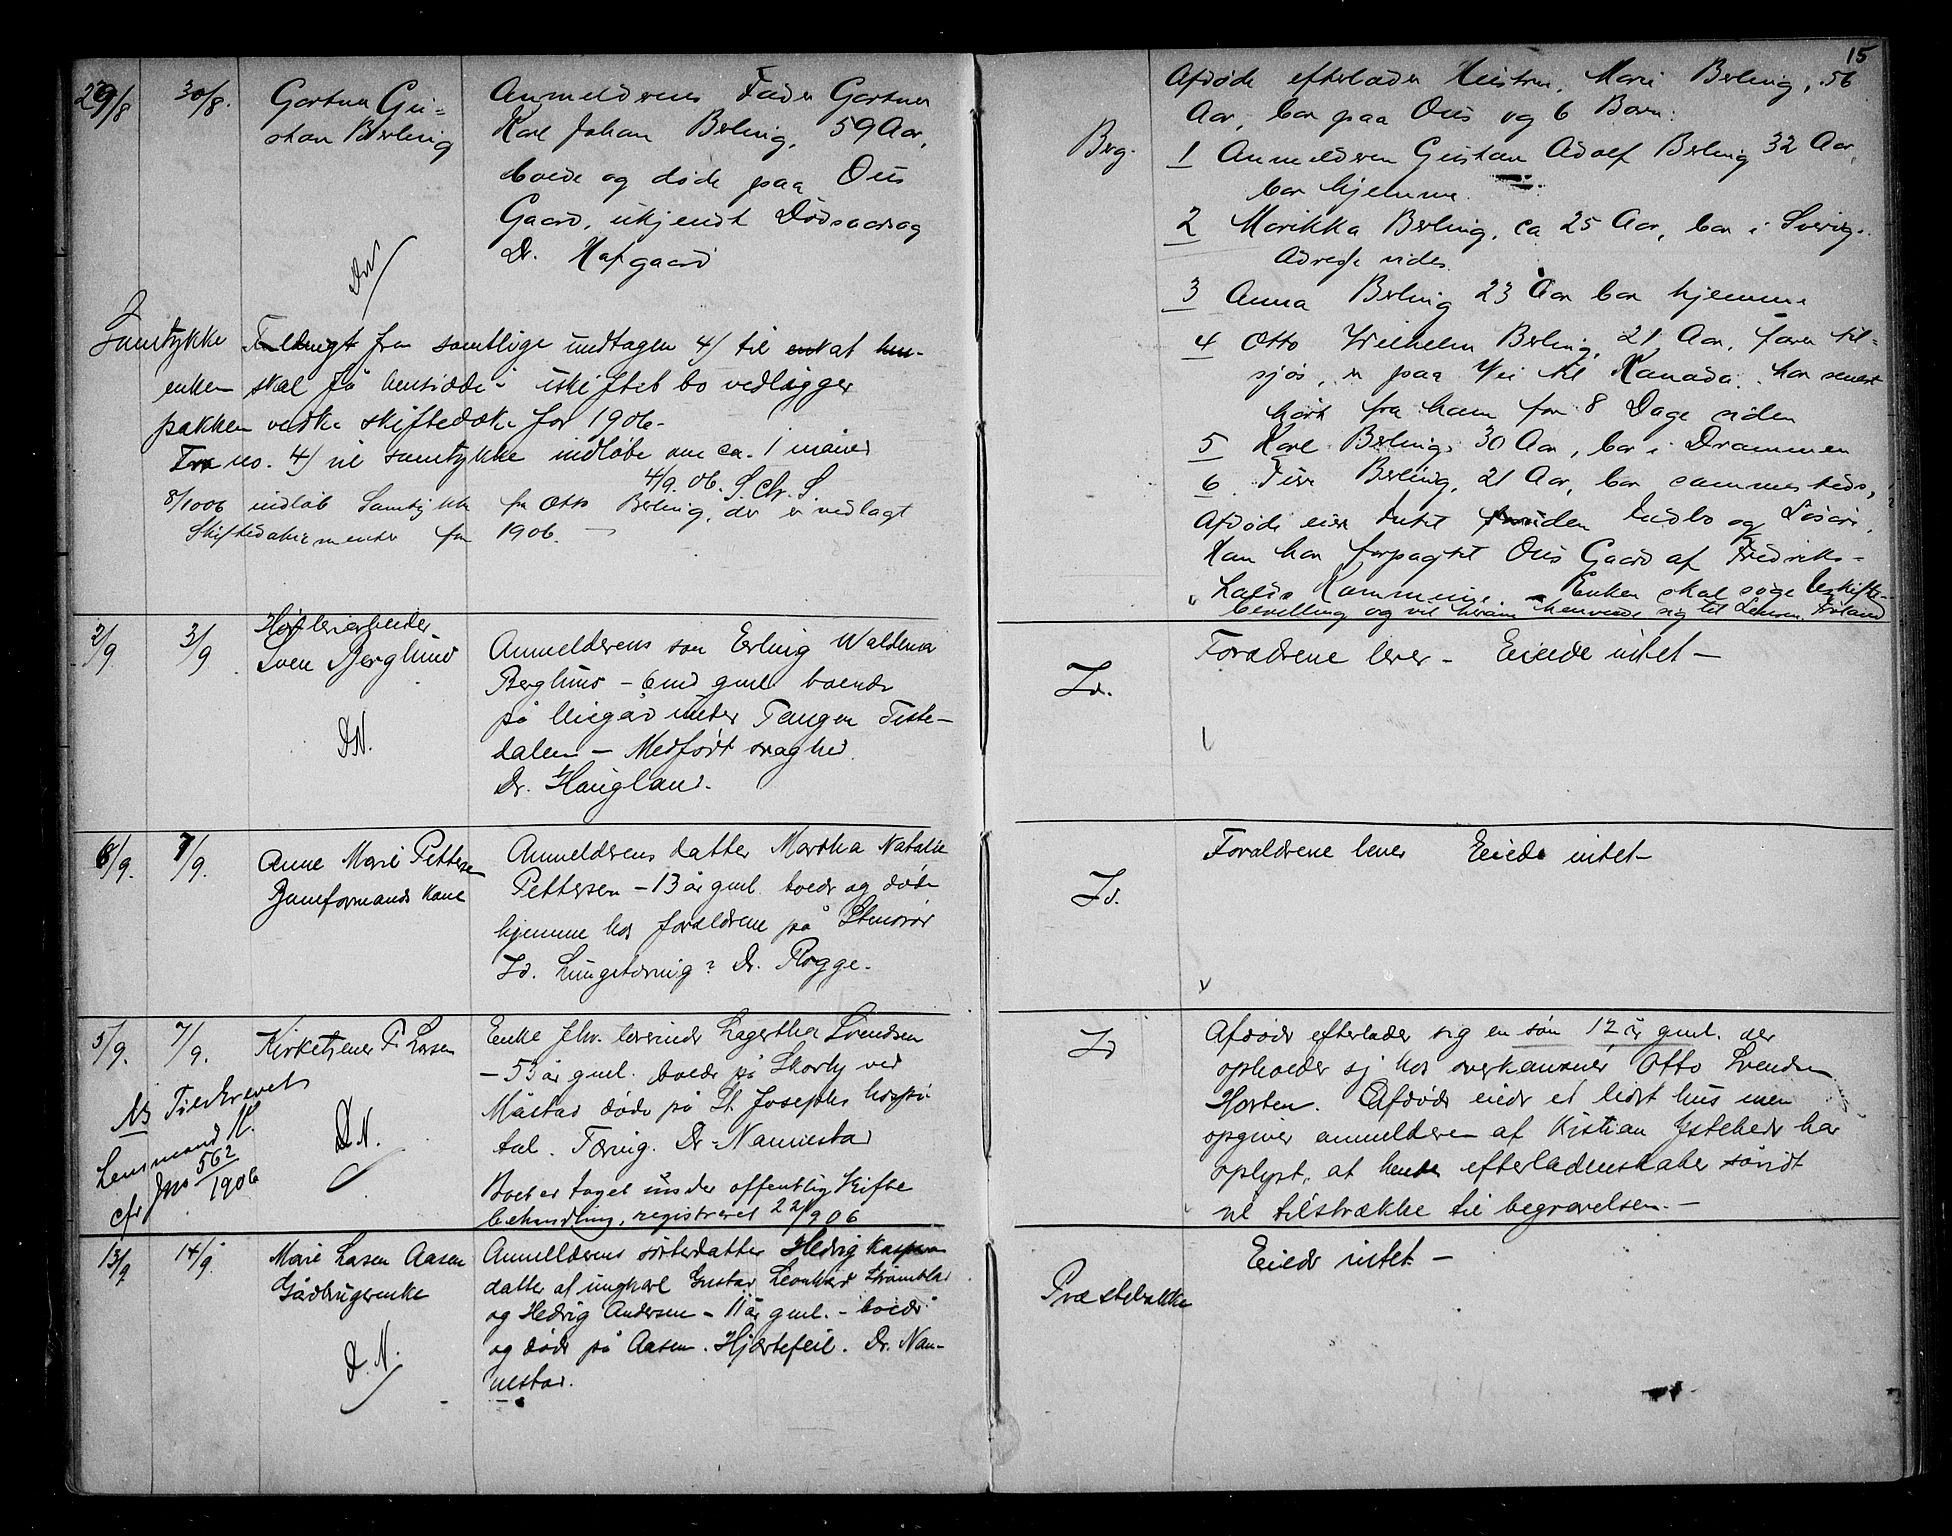 15
29/8
30/8.
Gartner Gu=
stav Berling
Anmelderens Fader Gartner
Karl Johan Berling, 59 Aar,
boede og døde paa Ous
Gaard, ukjendt Dødsaarsag
Dr. Hafgaard
DN
Samtykke fra samtlige undtagen 4/ til at
enken skal få hensidde i uskiftet bo vedligger
pakken vedk. skiftedok. for 1906.
Fra no. 4/ vil samtykke indløbe om ca. 1 måned
4/9. 06. S. Chr. S.
8/10 06 indløb Samtykke fra Otto Berling, der er vedlagt
Skiftedokumenter for 1906. —
Berg.
Afdøde efterlader Hustru, Mari Berling, 56
Aar, bor paa Ous og 6 Børn:
1 Anmelderen Gustav Adolf Berling 32 Aar,
bor hjemme.
2 Marikka Berling, ca 25 Aar, bor i Sverig.
Adresse vides
3 Anna Berling 23 Aar bor hjemme
4 Otto Wilhelm Berling, 21 Aar, farer til=
sjøs, er paa Vei til Kanada. har senest
hørt fra ham for 8 Dage siden
5 Karl Berling, 30 Aar, bor i Drammen
6 Berling, 21 Aar, bor sammesteds,
Afdøde eier Intet uden Indbo og Løsøre.
Han har forpagtet Ous Gaard af Fredriks-
halds Kommune. - Enken skal søge uskifte-
bevilling og vil herom henvende sig til Lensm.
2/9
3/9
Høvleriarbeider
Sven Berglund
DN.
Anmelderens søn Erling Waldemar
Berglund – 6 md gml. boende
på under Tangen Tiste-
dalen – Medfødt svaghed.
Dr. Haugland.
Id.
Forældrene lever – Eiede intet –
6/9.
7/9.
Anne Marie Pettersen
Baneformands kone
Anmelderens datter Martha Natalie
Pettersen – 13 år gml. boede og døde
hjemme hos forældrene på Stenrør
Id. Lungetæring? Dr. Rogge.
Id.
Forældrene lever Eiede intet –
5/9.
7/9.
Kirketjener P. Larsen
Nb Tilskrevet
Lensmand H.
cfr Jno 562/1906
D.N.
Enke fhv. lærerinde Lagertha Svendsen
– 53 år gml. boede på Skorby ved
Måstad døde på St. Josephs hospi-
tal. Tæring. Dr. Nannestad
Boet er taget under offentlig skifte
behandling, registreret 22/9 06
Id
Afdøde efterlader sig en søn 12 år gml. der
opholder sig hos overkanoner Otto Svendsen
Horten. Afdøde eiede et lidet hus men
opgiver anmelderen af Kristian Istehede har
oplyst, at hendes efterladenskaber såvidt
vil tilstrække til begravelsen. –
13/9
14/9
Marie Larsen Aasen
Gårdbrugerenke
D. N.
Anmelderens søsterdatter Hedvig
datter af ungkarl Gustav Leonhard Strømblad
og Hedvig Andersen – 11 år gml. – boede
og døde på Aasen. Hjærtefeil. Dr. Nan-
nestad.
Præstebakke
Eiede intet –